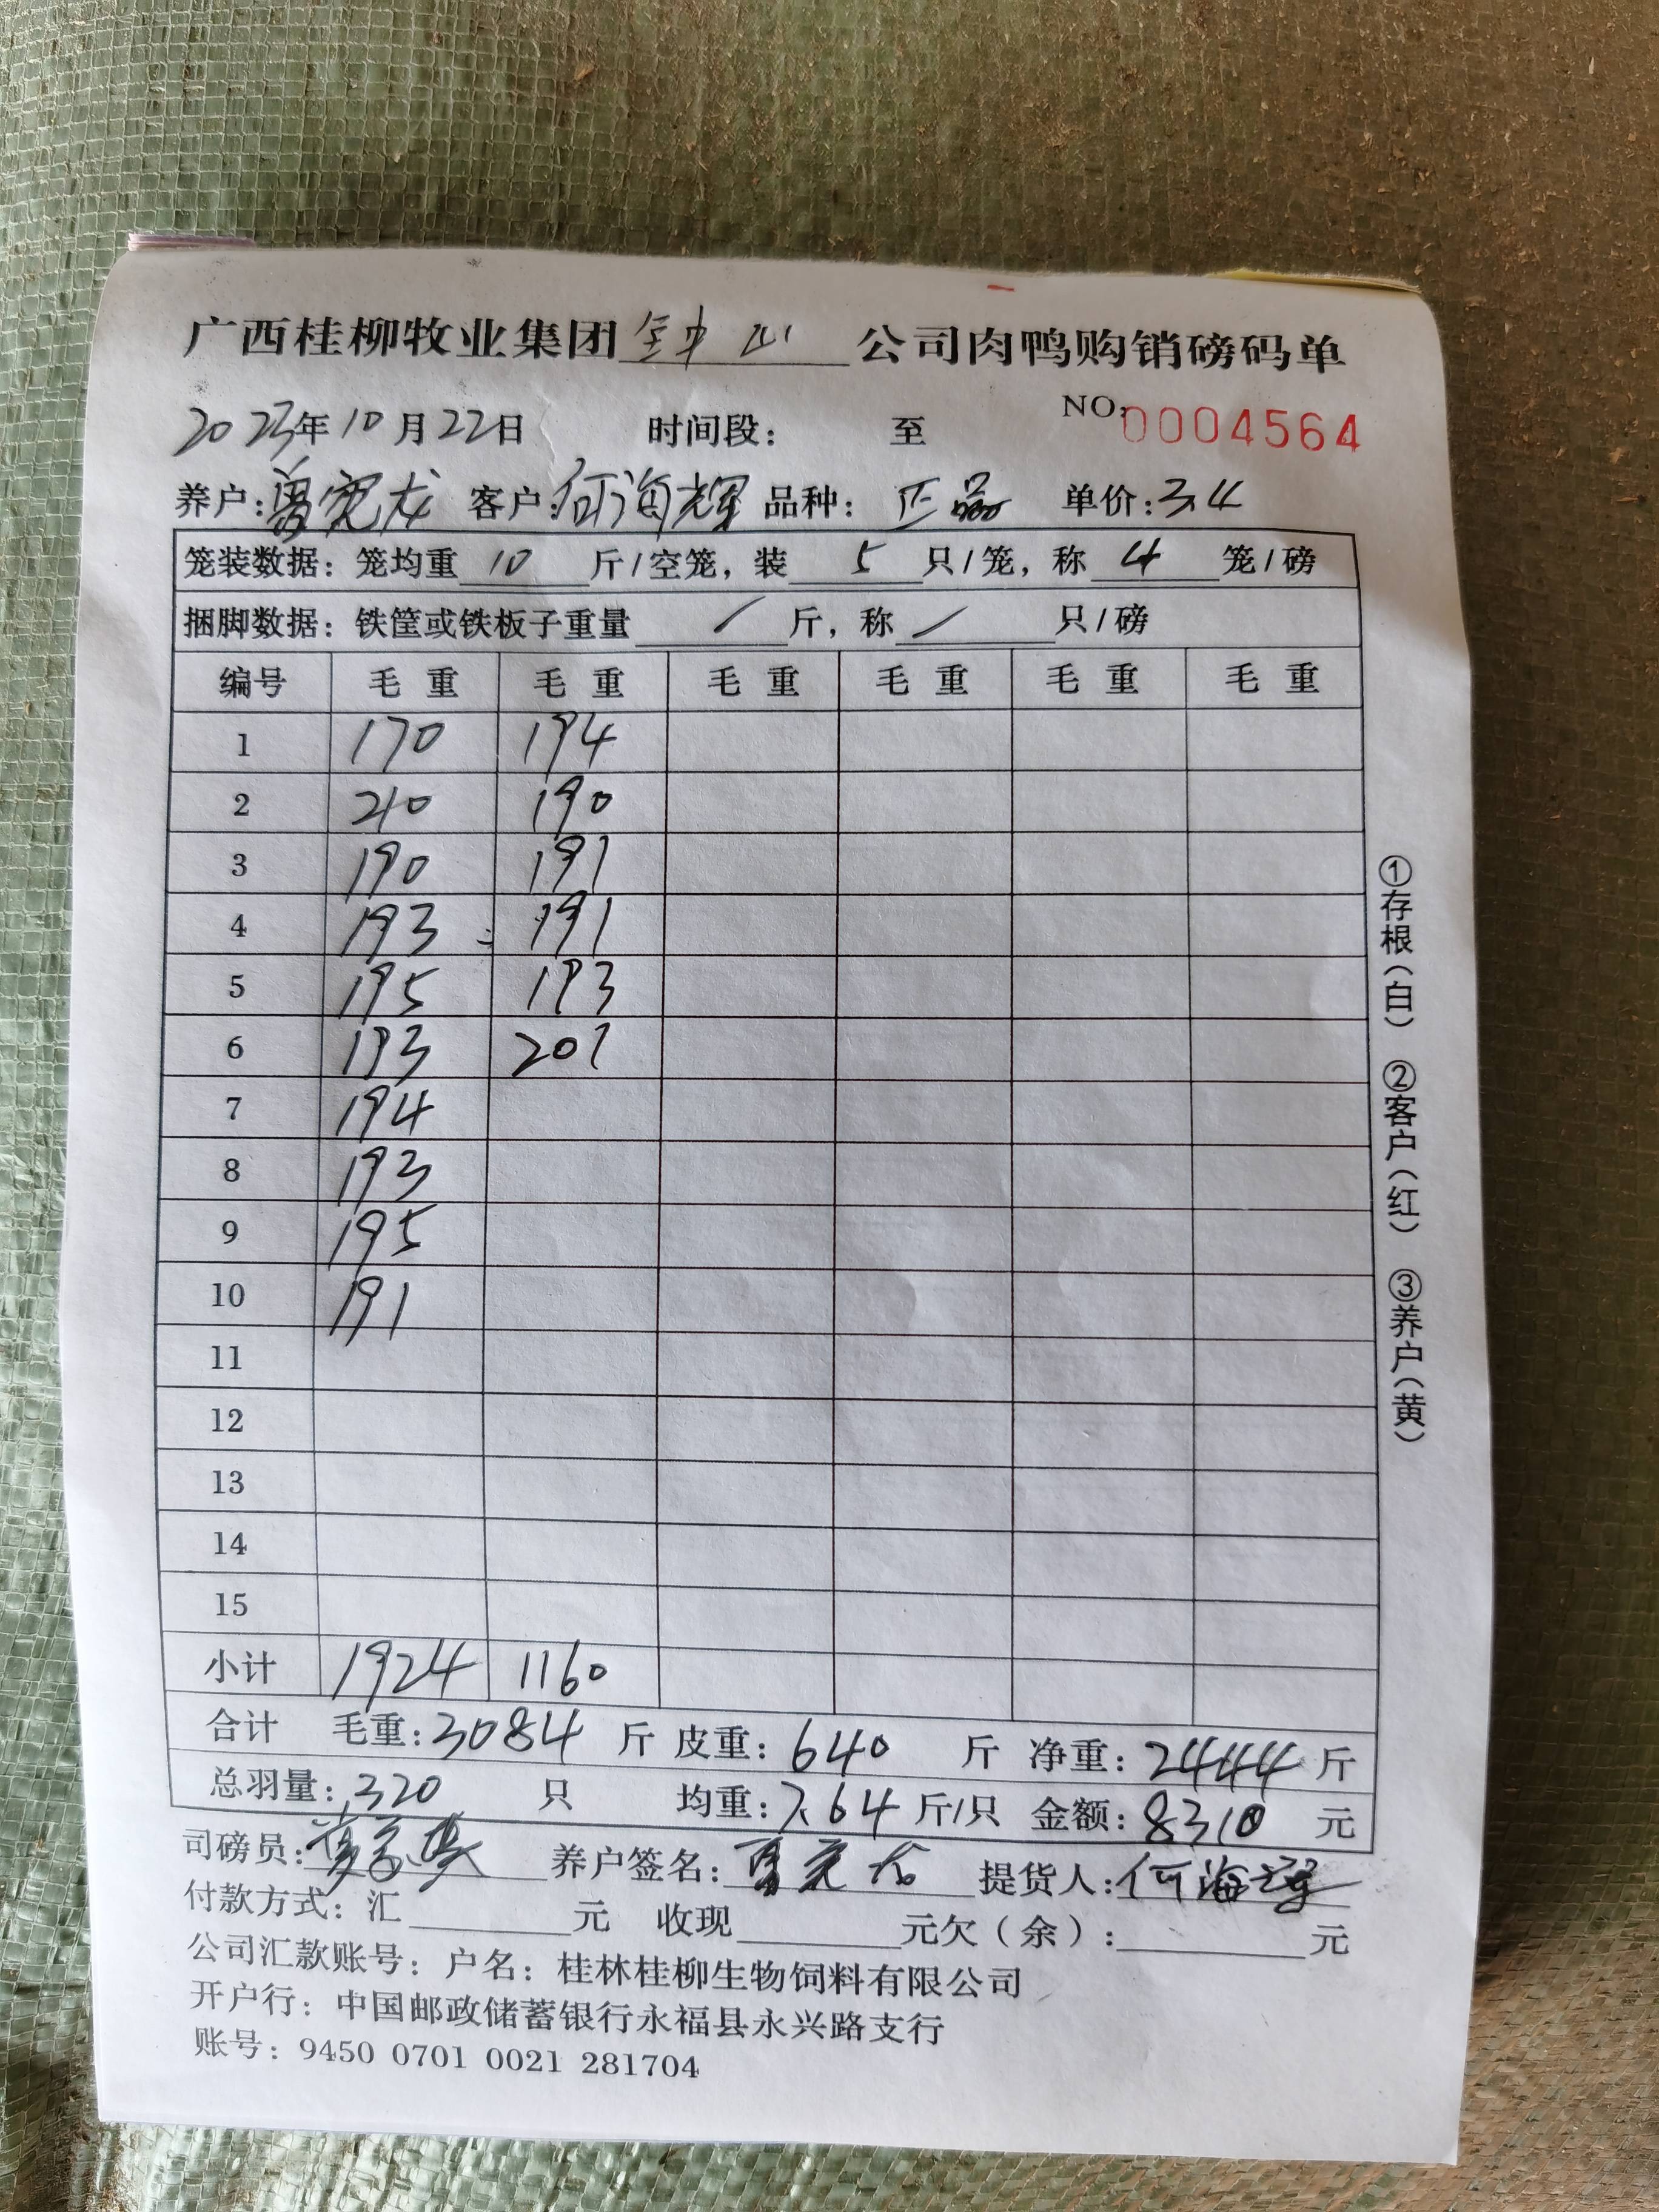 广西桂柳牧业集团钟山公司肉鸭购销磅码单
2023年10月22日 时间段： 至 NO:0004564
养户: 客户:何海辉 品种：正品 单价:3.4
笼装数据：笼均重10斤/空笼，装5只/笼，称4笼/磅
捆脚数据：铁筐或铁板子重量/斤，称/只/磅
编号 毛重 毛重 毛重 毛重 毛重 毛重
1 170 194
2 210 190
3 190 191
4 193 191
5 195 193
6 193 201
7 194
8 193
9 195
10 191
11
12
13
14
15
小计 1924 1160
合计 毛重:3084斤 皮重:640斤 净重:2444斤
总羽量:320只 均重:7.64斤/只 金额:8310元
司磅员: 养户签名: 提货人:何海辉
付款方式：汇 元 收现 元欠（余）: 元
公司汇款账号：户名：桂林桂柳生物饲料有限公司
开户行：中国邮政储蓄银行永福县永兴路支行
账号：9450 0701 0021 281704
①存根（白） ②客户（红） ③养户（黄）